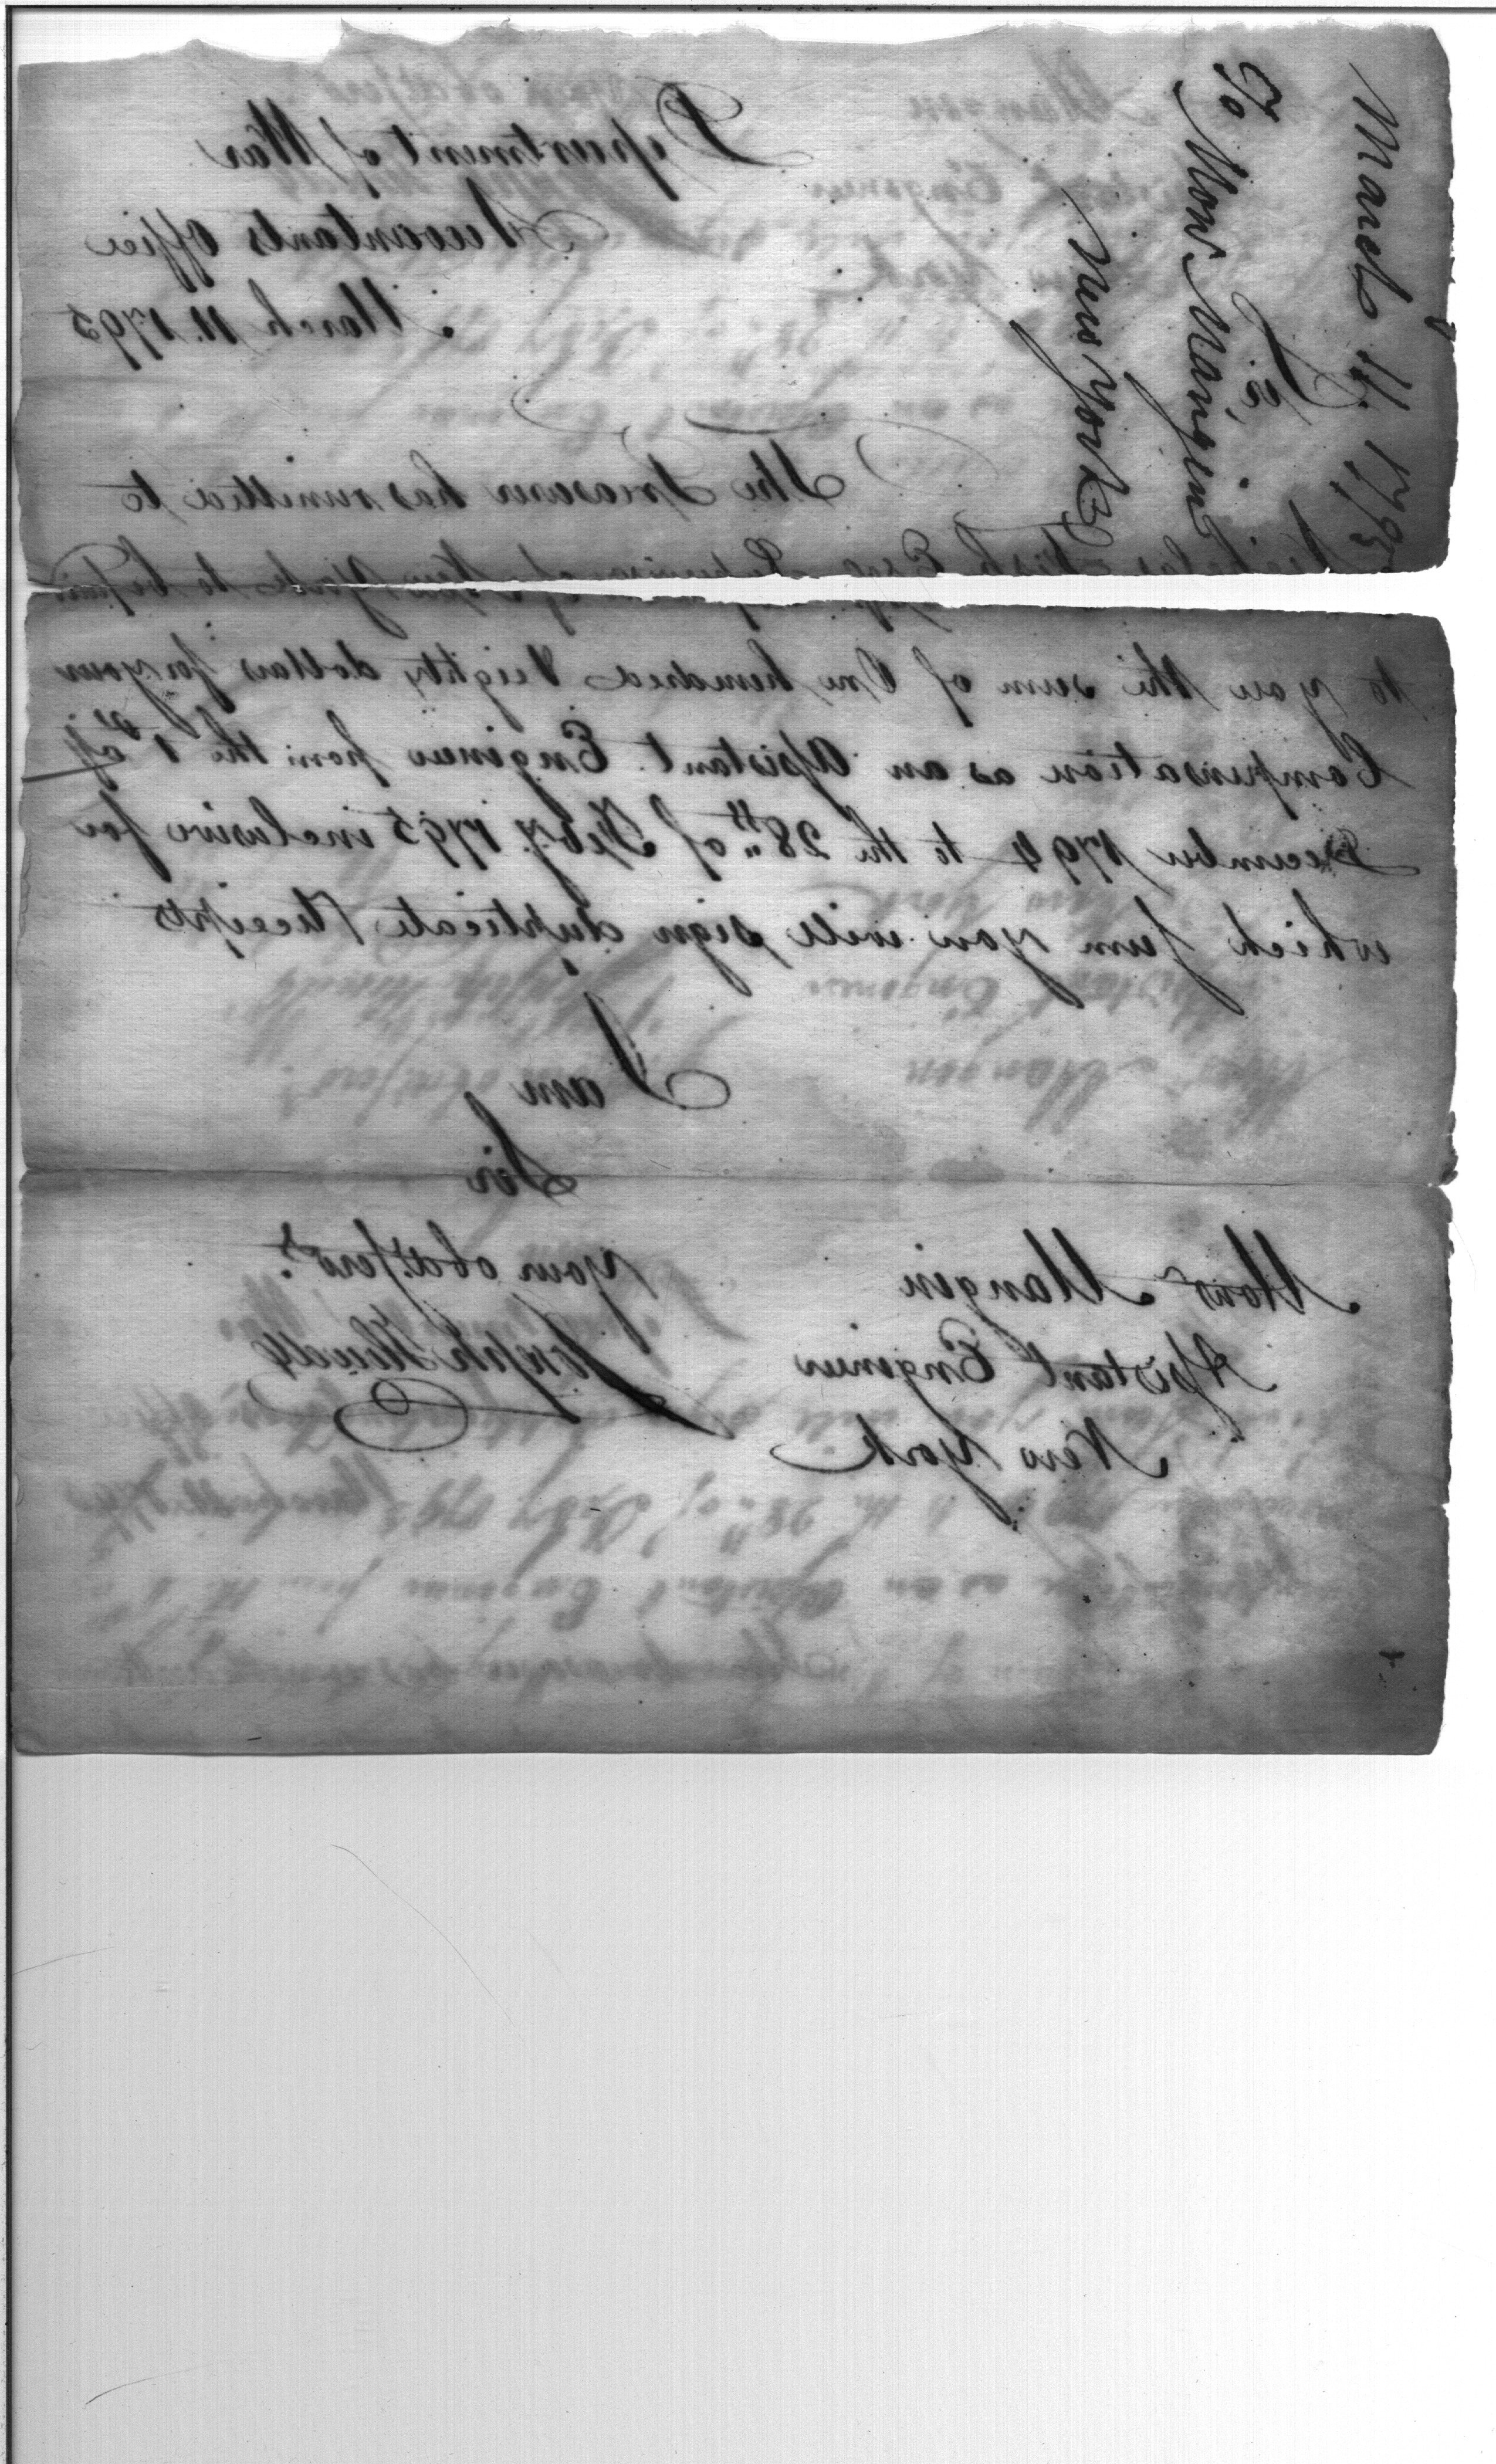 March 11. 1795
To Monr Mangin
New York
Department of War
Accountants Office
March 11. 1795
Sir,
The Treasurer has remitted to
Nicholas Fish Esqr Supervisor of New York to be paid
to you the sum of One hundred & eighty dollars for your
Compensation as an Assistant Engineer from the 1st of
December 1794 to the 28th of Feby. 1795 inclusive for
which sum you will sign duplicate Receipts
I am
Sir
Your obdt. servt.
Joseph Howell
Monr Mangin
Assistant Engineer
New York